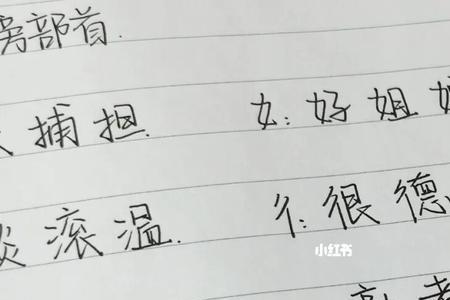 旁部首.
捕担.
女:好姐
滚温.
彳:很德
小红书